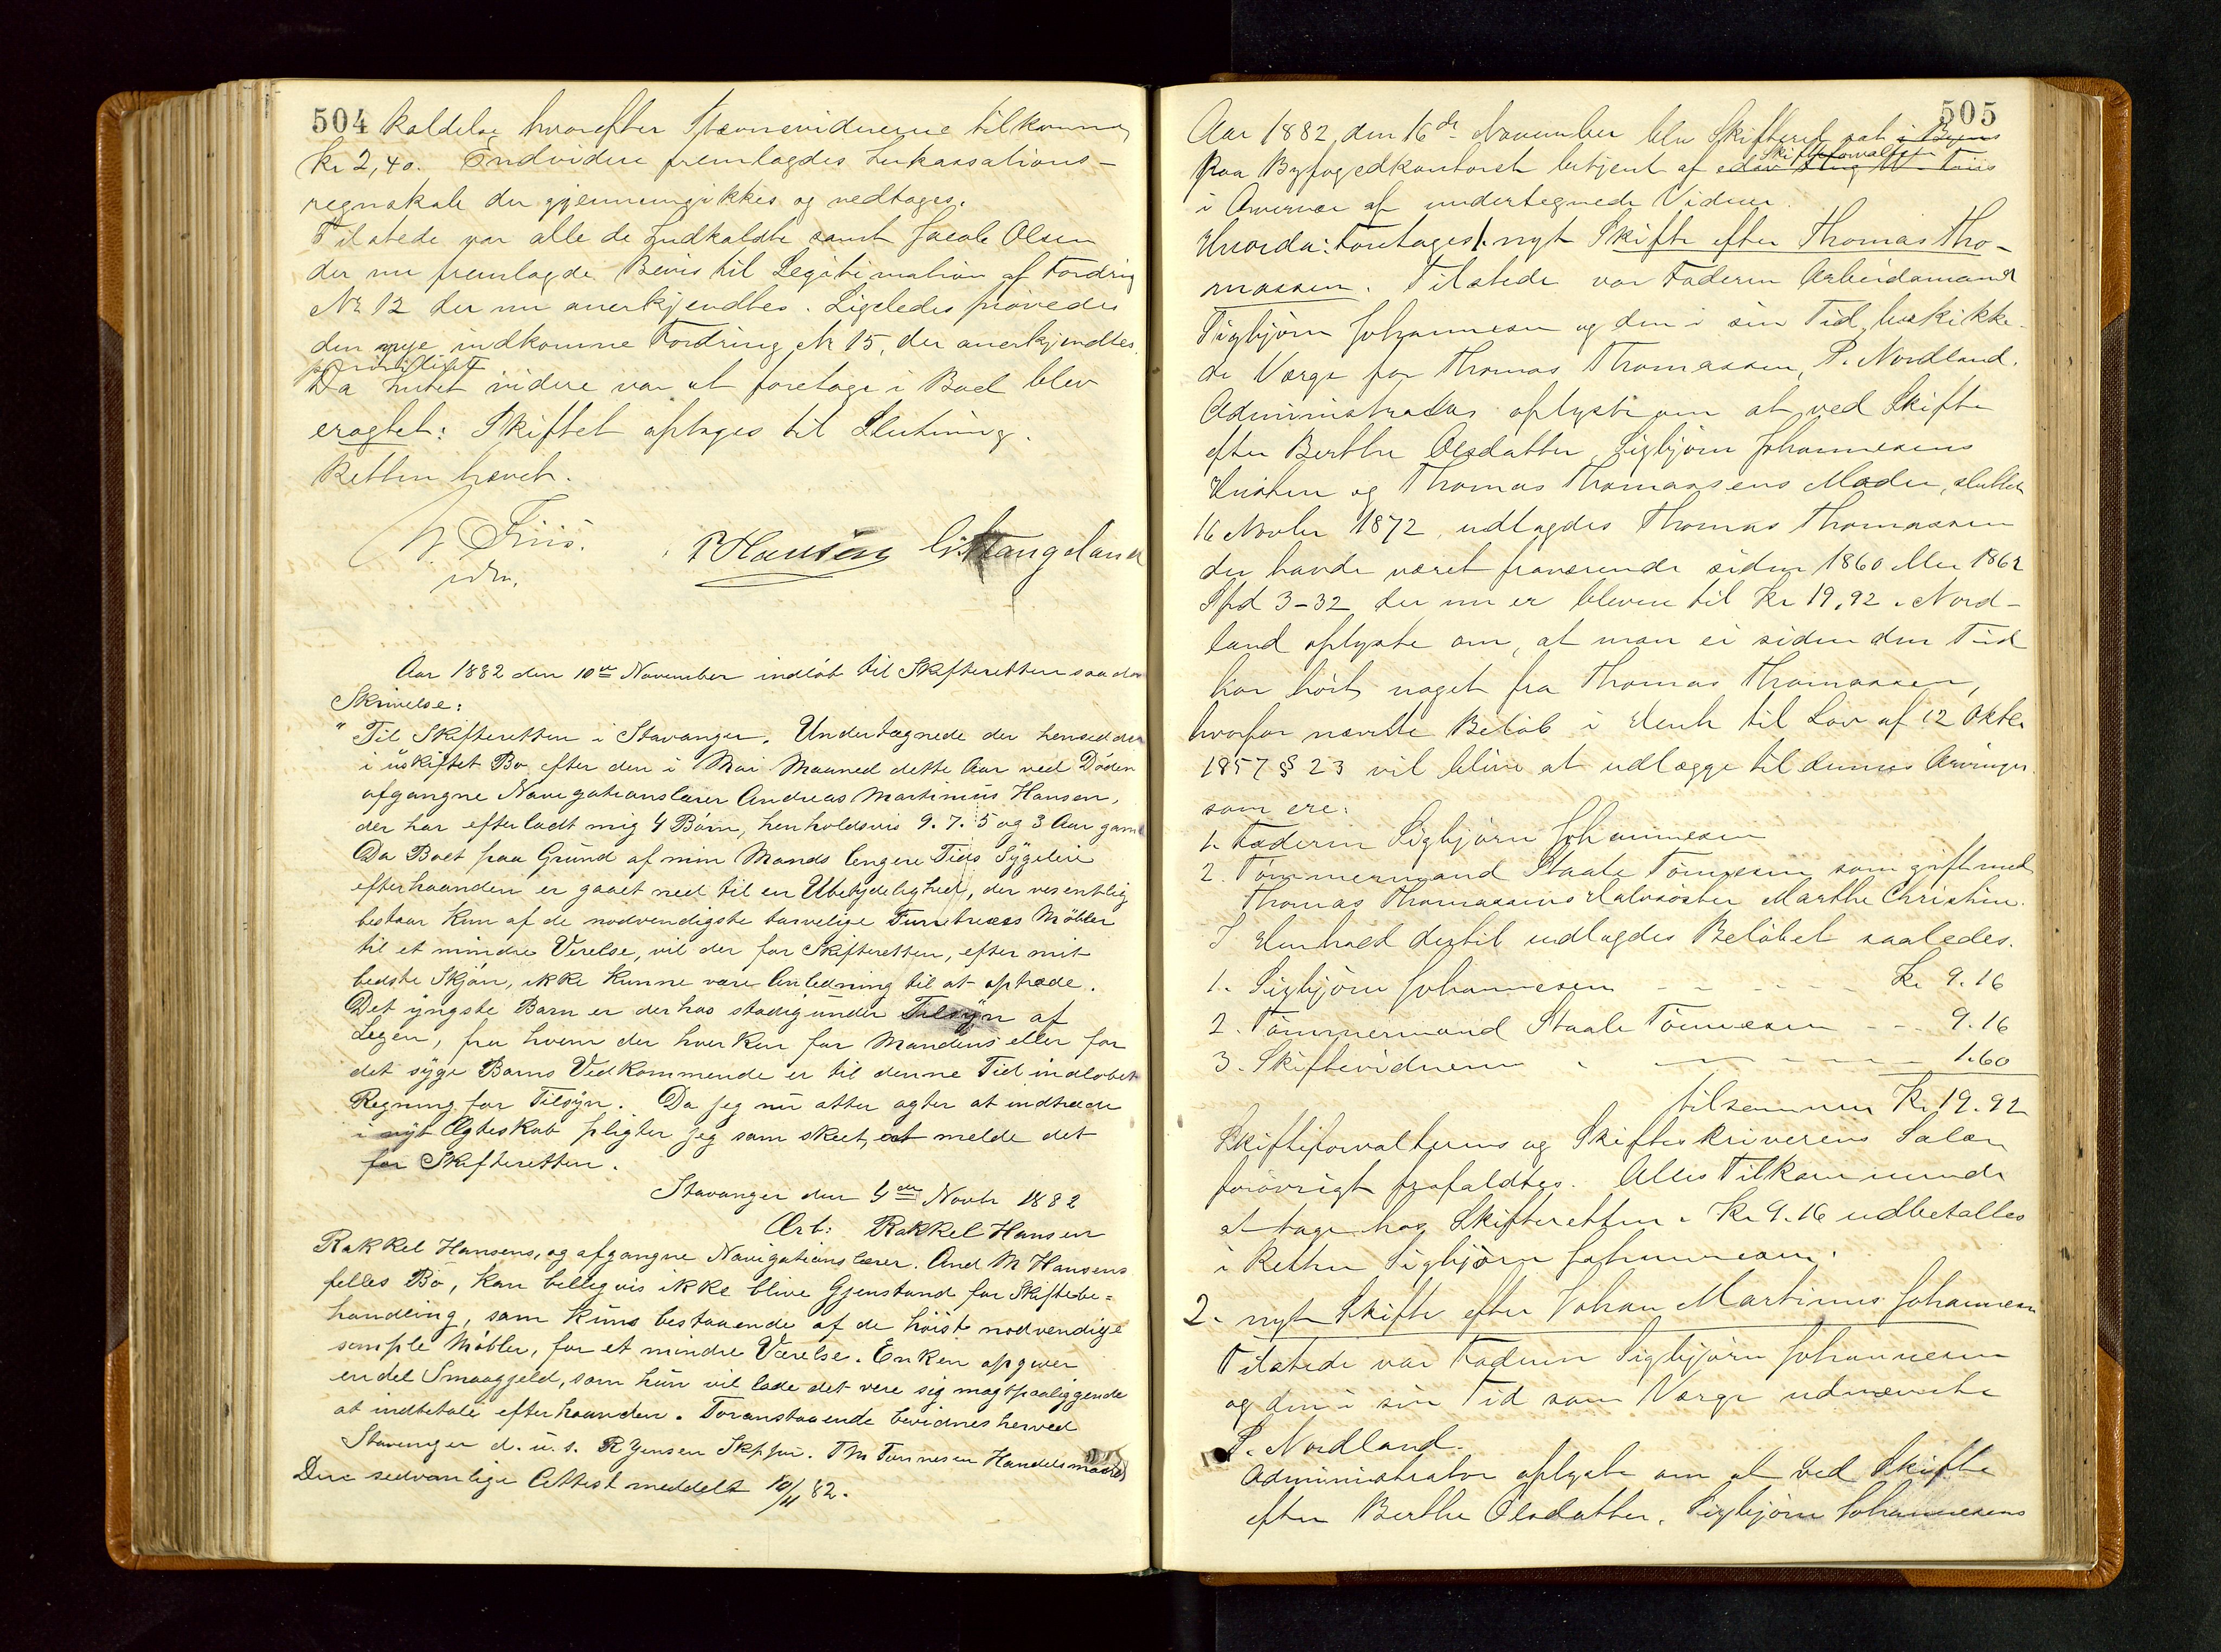 504 kaldelse hvorefter Stævnevidnerne tilkommer
Kr 2,40. Endvidere fremlagdes Inkassations-
regnskab der gjennemgikkes og vedtoges.
Tilstede var alle de Indkaldte samt Jacob Olsen
der nu fremlagde Bevis til Legitimation af Fordring
Nr 12 der nu anerkjendtes. Ligeledes prøvedes
den nye indkomne Fordring Nr 15, der anerkjendtes.
Da Intet videre var at foretage i Boet blev
eragtet: Skiftet optages til Slutning.
Retten hævet.
W Friis. P Hansen G Stangeland
Aar 1882 den 10de November indløb til Skifteretten saadan
Skrivelse:
"Til Skifteretten i Stavanger. Undertegnede der hensidder
i uskiftet Bo efter den i Mai Maaned dette Aar ved Døden
afgangne Navigationslærer Andreas Martinius Hansen,
der har efterladt mig 4 Børn, henholdsvis 9. 7. 5 og 3 Aar gaml
Da Boet paa Grund af min Mands længere Tids Sygeleie
efterhaanden er gaaet ned til en Ubetydelighed, der væsentlig
bestaar kun af de nødvendigste tarvelige Furutræes Møbler
til et mindre Værelse, vil der for Skifteretten, efter mit
bedste Skjøn, ikke kunne være Anledning til at optræde.
Det yngste Barn er derhos stadig under Tilsyn af
Lægen, fra hvem der hverken for Mandens eller for
det syge Barns Vedkommende er til denne Tid indløbet
Regning for Tilsyn. Da jeg nu atter agter at indtræde
i nyt Ægteskab pligter jeg som skeet, at melde det
for Skifteretten.
Stavanger den 4de Novbr 1882
Ærb: Rakkel Hansen
Rakkel Hansens, og afgangne Navigationslærer. And M Hansens
fælles Bo, kan billigvis ikke blive Gjenstand for Skiftebe=
handling, som kuns bestaaende af de høist nødvendige
simple Møbler, for et mindre Værelse. Enken opgiver
en del Smaagjeld, som hun vil lade det være sig magtpaaliggende
at indbetale efterhaanden. Foranstaaende bevidnes herved
Stavanger d. u. s. R Jensen Skpfør. Th Tønnesen Handelsmand
Den sedvanlige Attest meddelt 10/11 82.
505
Aar 1882 den 16de November blev Skifteret sat i Byens
paa Byfogedkontoret betjent af Skifteforvalter W. Friis
i Overvær af undertegnede Vidner.
Hvorda: Foretoges 1. nyt Skifte efter Thomas Tho-
massen. Tilstede var Faderen Arbeidsmand
Sigbjørn Johannesen og den i sin Tid beskikke-
de Værge for Thomas Thomassen, P. Nordland.
Administrator oplyste om at ved Skifte
efter Berthe Olsdatter, Sigbjørn Johannesens
Hustru og Thomas Thomassens Moder, sluttet
16 Novbr 1872, udlagdes Thomas Thomassen
der havde været fraværende siden 1860 eller 1862
Spd 3-32 der nu er bleven til Kr 19,92. Nord-
land oplyste om, at man ei siden den Tid
har hørt noget fra Thomas Thomassen,
hvorfor nævnte Beløb i Henh til Lov af 12 Oktbr
1857 § 23 vil blive at udlægge til dennes Arvinger
som ere:
1. Faderen Sigbjørn Johannesen
2. Tømmermand Staale Tønnesen som gift med
Thomas Thomassens Halvsøster Marthe Christine.
I Henhold dertil udlagdes Beløbet saaledes.
1. Sigbjørn Johannesen - - - - - Kr 9.16
2. Tømmermand Staale Tønnesen - - 9.16
3. Skiftevidnerne - - - - - 1.60
tilsammen Kr 19.92
Skifteforvalterens og Skifteskriverens Salær
forøvrigt frafaldtes. Alles Tilkommende
at tage hos Skifteretten. Kr 9.16 udbetaltes
i Retten Sigbjørn Johannesen.
2. nyt Skifte efter Johan Martinus Johannesen
Tilstede var Faderen Sigbjørn Johannesen
og den i sin Tid som Værge udnævnte
P. Nordland.
Administrator oplyste om at ved Skifte
efter Berthe Olsdatter, Sigbjørn Johannesens